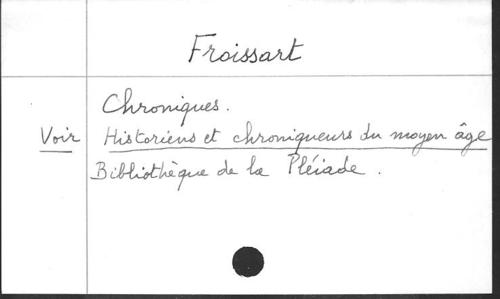 Froissart
Chroniques.
Voir Historiens et chroniqueurs du moyen âge
Bibliothèque de la Pléiade.